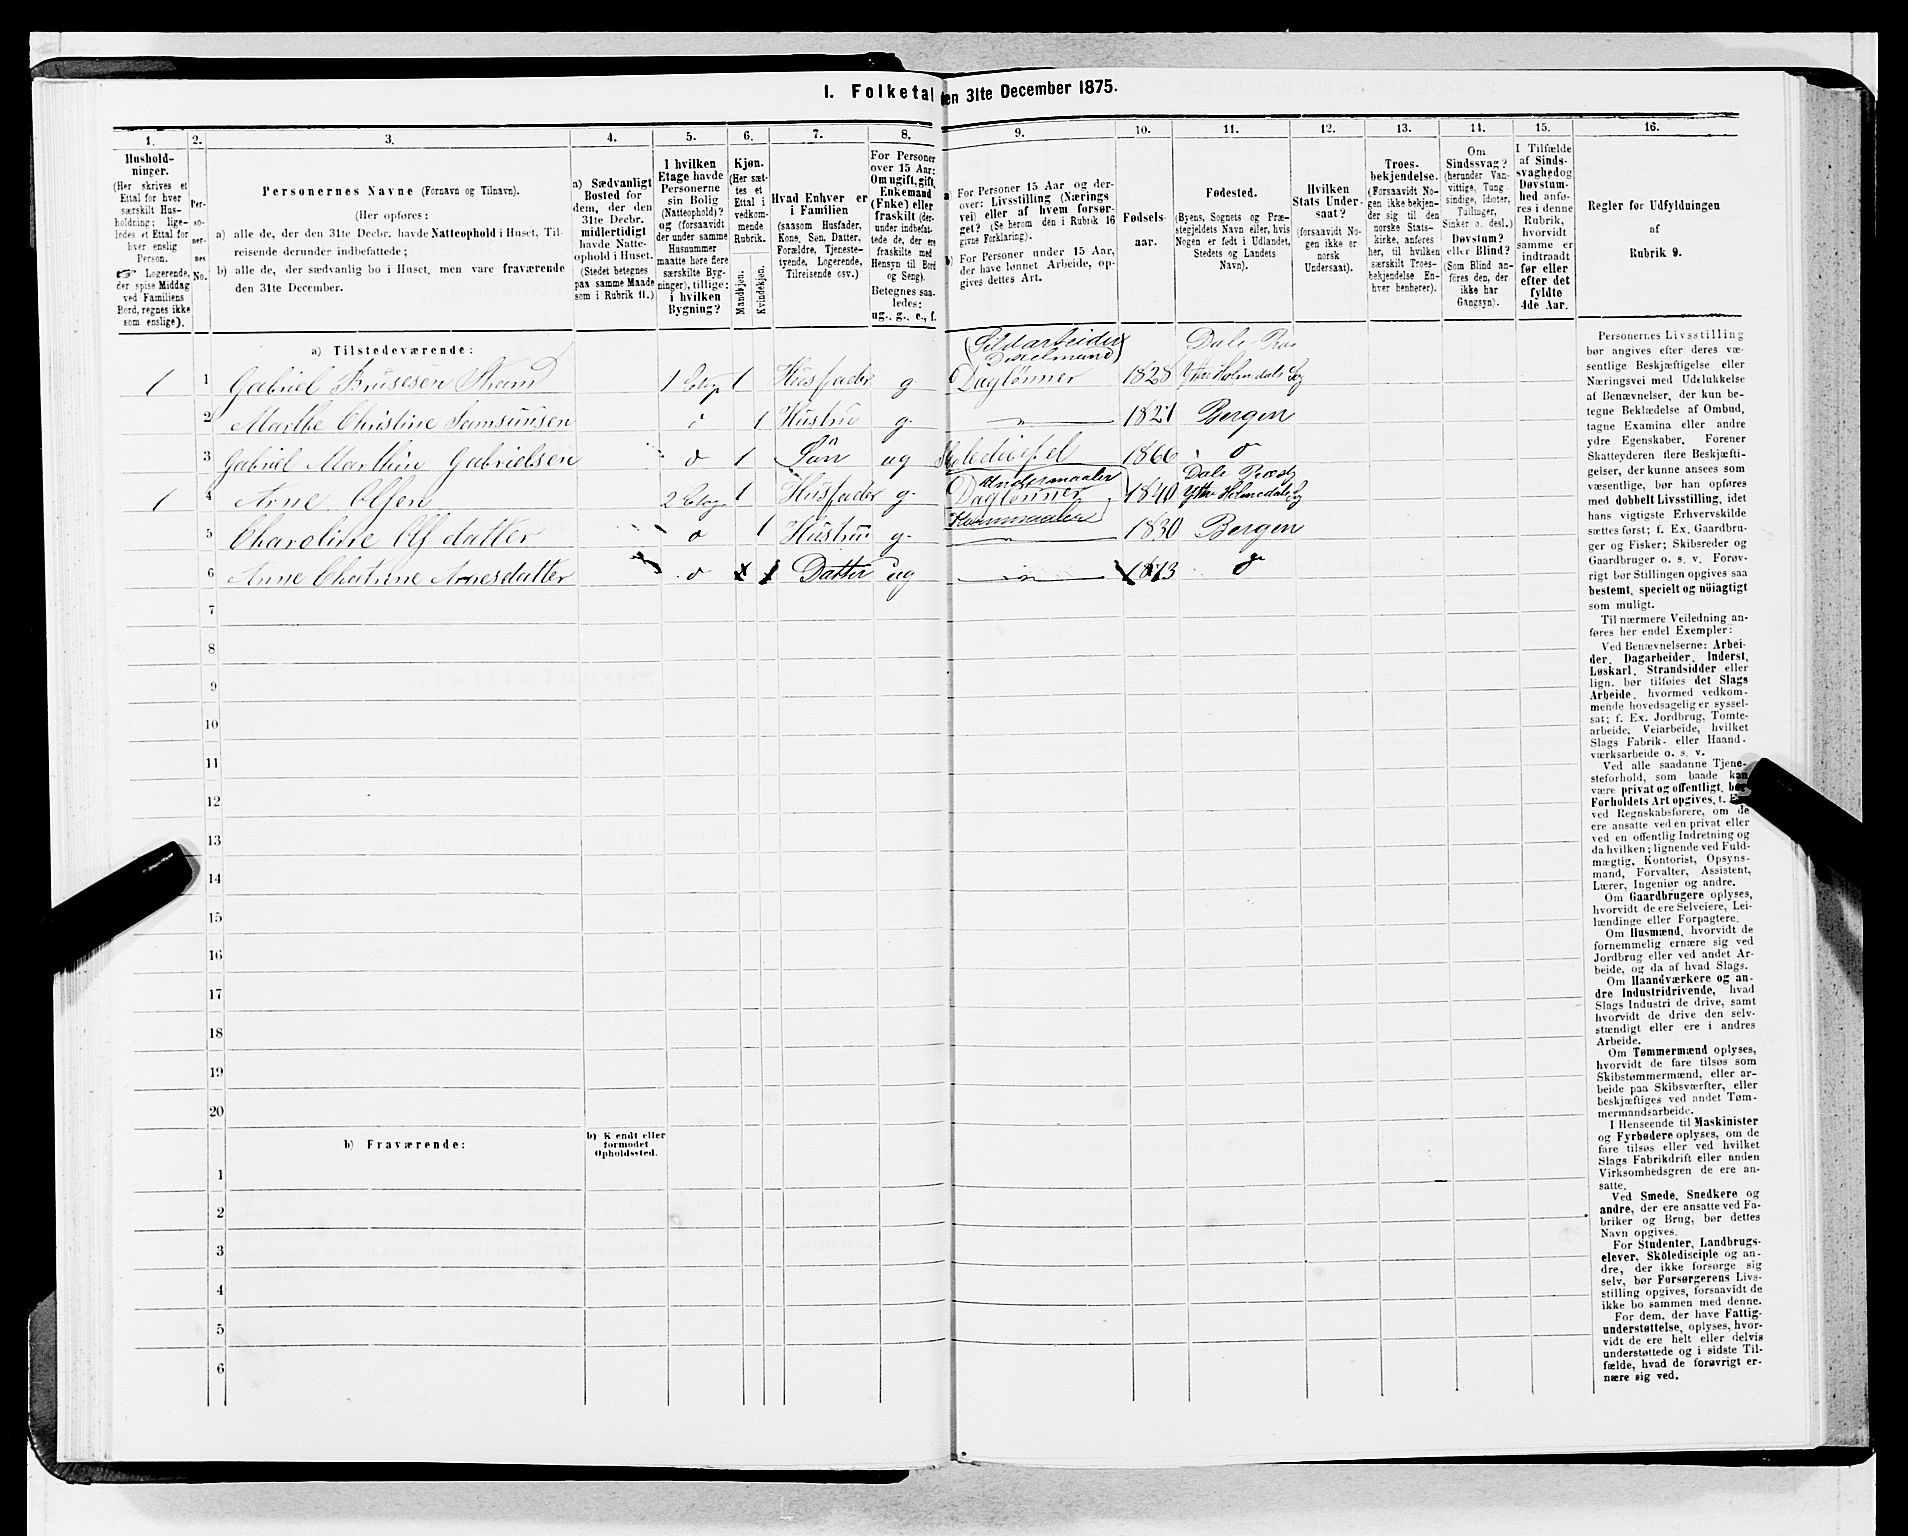 I. Folketal den 31te December 1875.
1. 2. 3. 4. 5. 6. 7. 8. 9. 10. 11. 12. 13. 14. 15. 16.
Hushold-
ninger.
(Her skrives et
Ettal for hver
særskilt Hus-
holdning; lige-
ledes et Ettal for
hver enslig
Person.
☞ Logerende,
der spise Middag
ved Familiens
Bord, regnes ikke
som enslige).
Per-
so-
ner-
nes
No.
Personernes Navne (Fornavn og Tilnavn).
(Her opføres:
a) alle de, der den 31te Decbr. havde Natteophold i Huset, Til-
reisende derunder indbefattede;
b) alle de, der sædvanlig bo i Huset, men vare fraværende
den 31te December.
a) Sædvanligt
Bosted for
dem, der den
31te Decbr.
midlertidigt
havde Natte-
ophold i Huset.
(Stedet betegnes
paa samme Maade
som i Rubrik 11.)
I hvilken
Etage havde
Personerne
sin Bolig
(Natteophold)?
og (forsaavidt
der under samme
Husnummer
maatte høre flere
særskilte Byg-
ninger), tillige:
i hvilken
Bygning?
Kjøn.
(Her sæt-
tes et
Ettal i
vedkom-
mende
Rubrik.
Mandkjøn.
Kvindekjøn.
Hvad Enhver er
i Familien
(saasom Husfader,
Kone, Søn, Datter,
Forældre, Tjeneste-
tyende, Logerende,
Tilreisende osv.)
For Personer
over 15 Aar:
Om ugift, gift,
Enkemand
(Enke) eller
fraskilt (der-
under indbefat-
tede de, der ere
fraskilte med
Hensyn til Bord
og Seng).
Betegnes saa-
ledes:
ug., g., e., f.
a) For Personer 15 Aar og der-
over: Livsstilling (Nærings
vei) eller af hvem forsør-
get? (Se herom den i Rubrik 16
givne Forklaring).
b) For Personer under 15 Aar,
der have lønnet Arbeide, op-
gives dettes Art.
Fødsels-
aar.
Fødested.
(Byens, Sognets og Præ-
stegjeldets Navn eller, hvis
Nogen er født i Udlandet,
Stedets og Landets
Navn).
Hvilken
Stats Under-
saat?
(forsaavidt No-
gen ikke er
norsk
Undersaat).
Troes-
bekjendelse.
(Forsaavidt No-
gen ikke bekjen-
der sig til den
norske Stats-
kirke, anføres
her, til hvilken
særskilt Troes-
bekjendelse En-
hver henhører).
Om
Sindssvag?
(herunder Van-
vittige, Tung-
sindige, Idioter,
Tullinger,
Sinker o. desl.)
Døvstum?
eller Blind?
(Som Blind an-
føres den, der
ikke har
Gangsyn).
I Tilfælde
af Sinds-
svaghed og
Døvstum-
hed anfø-
res i denne
Rubrik,
hvorvidt
samme er
indtraadt
før eller
efter det
fyldte
4de Aar.
Regler for Udfyldningen
af
Rubrik 9.
a) Tilstedeværende:
(Sildarbeider
Dale Præ
1 1 Gabriel Strand 1 Etag 1 Husfader g Daglønner 1828 Ytre Holmdals Sg
2 Marthe Christine Samsunsen 1 Hustru g. 1821 Bergen
3 Gabriel Marthin Gabrielsen o 1 Søn ug 1866 o
Dale Præstg
1 4 Arne Olsen 2 Etag 1 Husfader g. Daglønner 1840 Ytre Holmedals Sg
Kornmaaler)
5 Charoline Olsdatter o 1 Hustru g. 1830 Bergen
6 Anne Chatrine Arnesdatter o 1 Datter ug 1873 o
7
8
9
10
11
12
13
14
15
16
17
18
19
20
b) Fraværende:
b) Kjendt eller
formodet
Opholdssted.
1
2
3
4
5
6
Personernes Livsstilling
bør angives efter deres væ-
sentlige Beskjæftigelse eller
Næringsvei med Udelukkelse
af Benævnelser, der kun be-
tegne Beklædelse af Ombud,
tagne Examina eller andre
ydre Egenskaber. Forener
Skatteyderen flere Beskjæfti-
gelser, der kunne ansees som
væsentlige, bør han opføres
med dobbelt Livsstilling, idet
hans vigtigste Erhvervskilde
sættes først; f. Ex. Gaardbru-
ger og Fisker; Skibsreder og
Gaardbruger o. s. v. Forøv-
rigt bør Stillingen opgives saa
bestemt, specielt og nöiagtigt
som muligt.
Til nærmere Veiledning an-
føres her endel Exempler:
Ved Benævnelserne: Arbei-
der, Dagarbeider, Inderst,
Løskarl, Strandsidder eller
lign. bør tilføies det Slags
Arbeide, hvormed vedkom-
mende hovedsagelig er syssel-
sat; f. Ex. Jordbrug, Tomte-
arbeide, Veiarbeide, hvilket
Slags Fabrik- eller Haand-
værksarbeide o. s. v.
Ved alle saadanne Tjene-
steforhold, som baade kan
være privat og offentligt, bør
Forholdets Art opgives, t. E
ved Regnskabsførere, om de
ere ansatte ved en privat eller
ved en offentlig Indretning og
da hvilken; lignende ved Fuld-
mægtig, Kontorist, Opsyns-
mand, Forvalter, Assistent,
Lærer, Ingeniør og andre.
Om Gaardbrugere oplyses,
hvorvidt de ere Selveiere, Lei-
lændinge eller Forpagtere.
Om Husmænd, hvorvidt de
fornemmelig ernære sig ved
Jordbrug eller ved andet Ar-
beide, og da af hvad Slags.
Om Haandværkere og an-
dre Industridrivende, hvad
Slags Industri de drive, samt
hvorvidt de drive den selv-
stændigt eller ere i andres
Arbeide.
Om Tømmermænd oplyses,
hvorvidt de fare tilsøs som
Skibstømmermænd, eller ar-
beide paa Skibsværfter, eller
beskjæftiges ved andet Tøm-
mermandsarbeide.
I Henseende til Maskinister
og Fyrbødere oplyses, om de
fare tilsøs eller ved hvilket
Slags Fabrikdrift eller anden
Virksomhedsgren de ere an-
satte.
Ved Smede, Snedkere og
andre, der ere ansatte ved Fa-
briker og Brug, bør dettes
Navn opgives.
For Studenter, Landbrugs-
elever, Skoledisciple og an-
dre, der ikke forsørge sig
selv, bør Forsørgerens Livs-
stilling opgives, forsaavidt de
ikke bo sammen med denne.
For dem, der have Fattig-
understøttelse, oplyses, hvor-
vidt de ere helt eller delvis
understøttede og i sidste Til-
fælde, hvad de forøvrigt er-
nære sig ved.